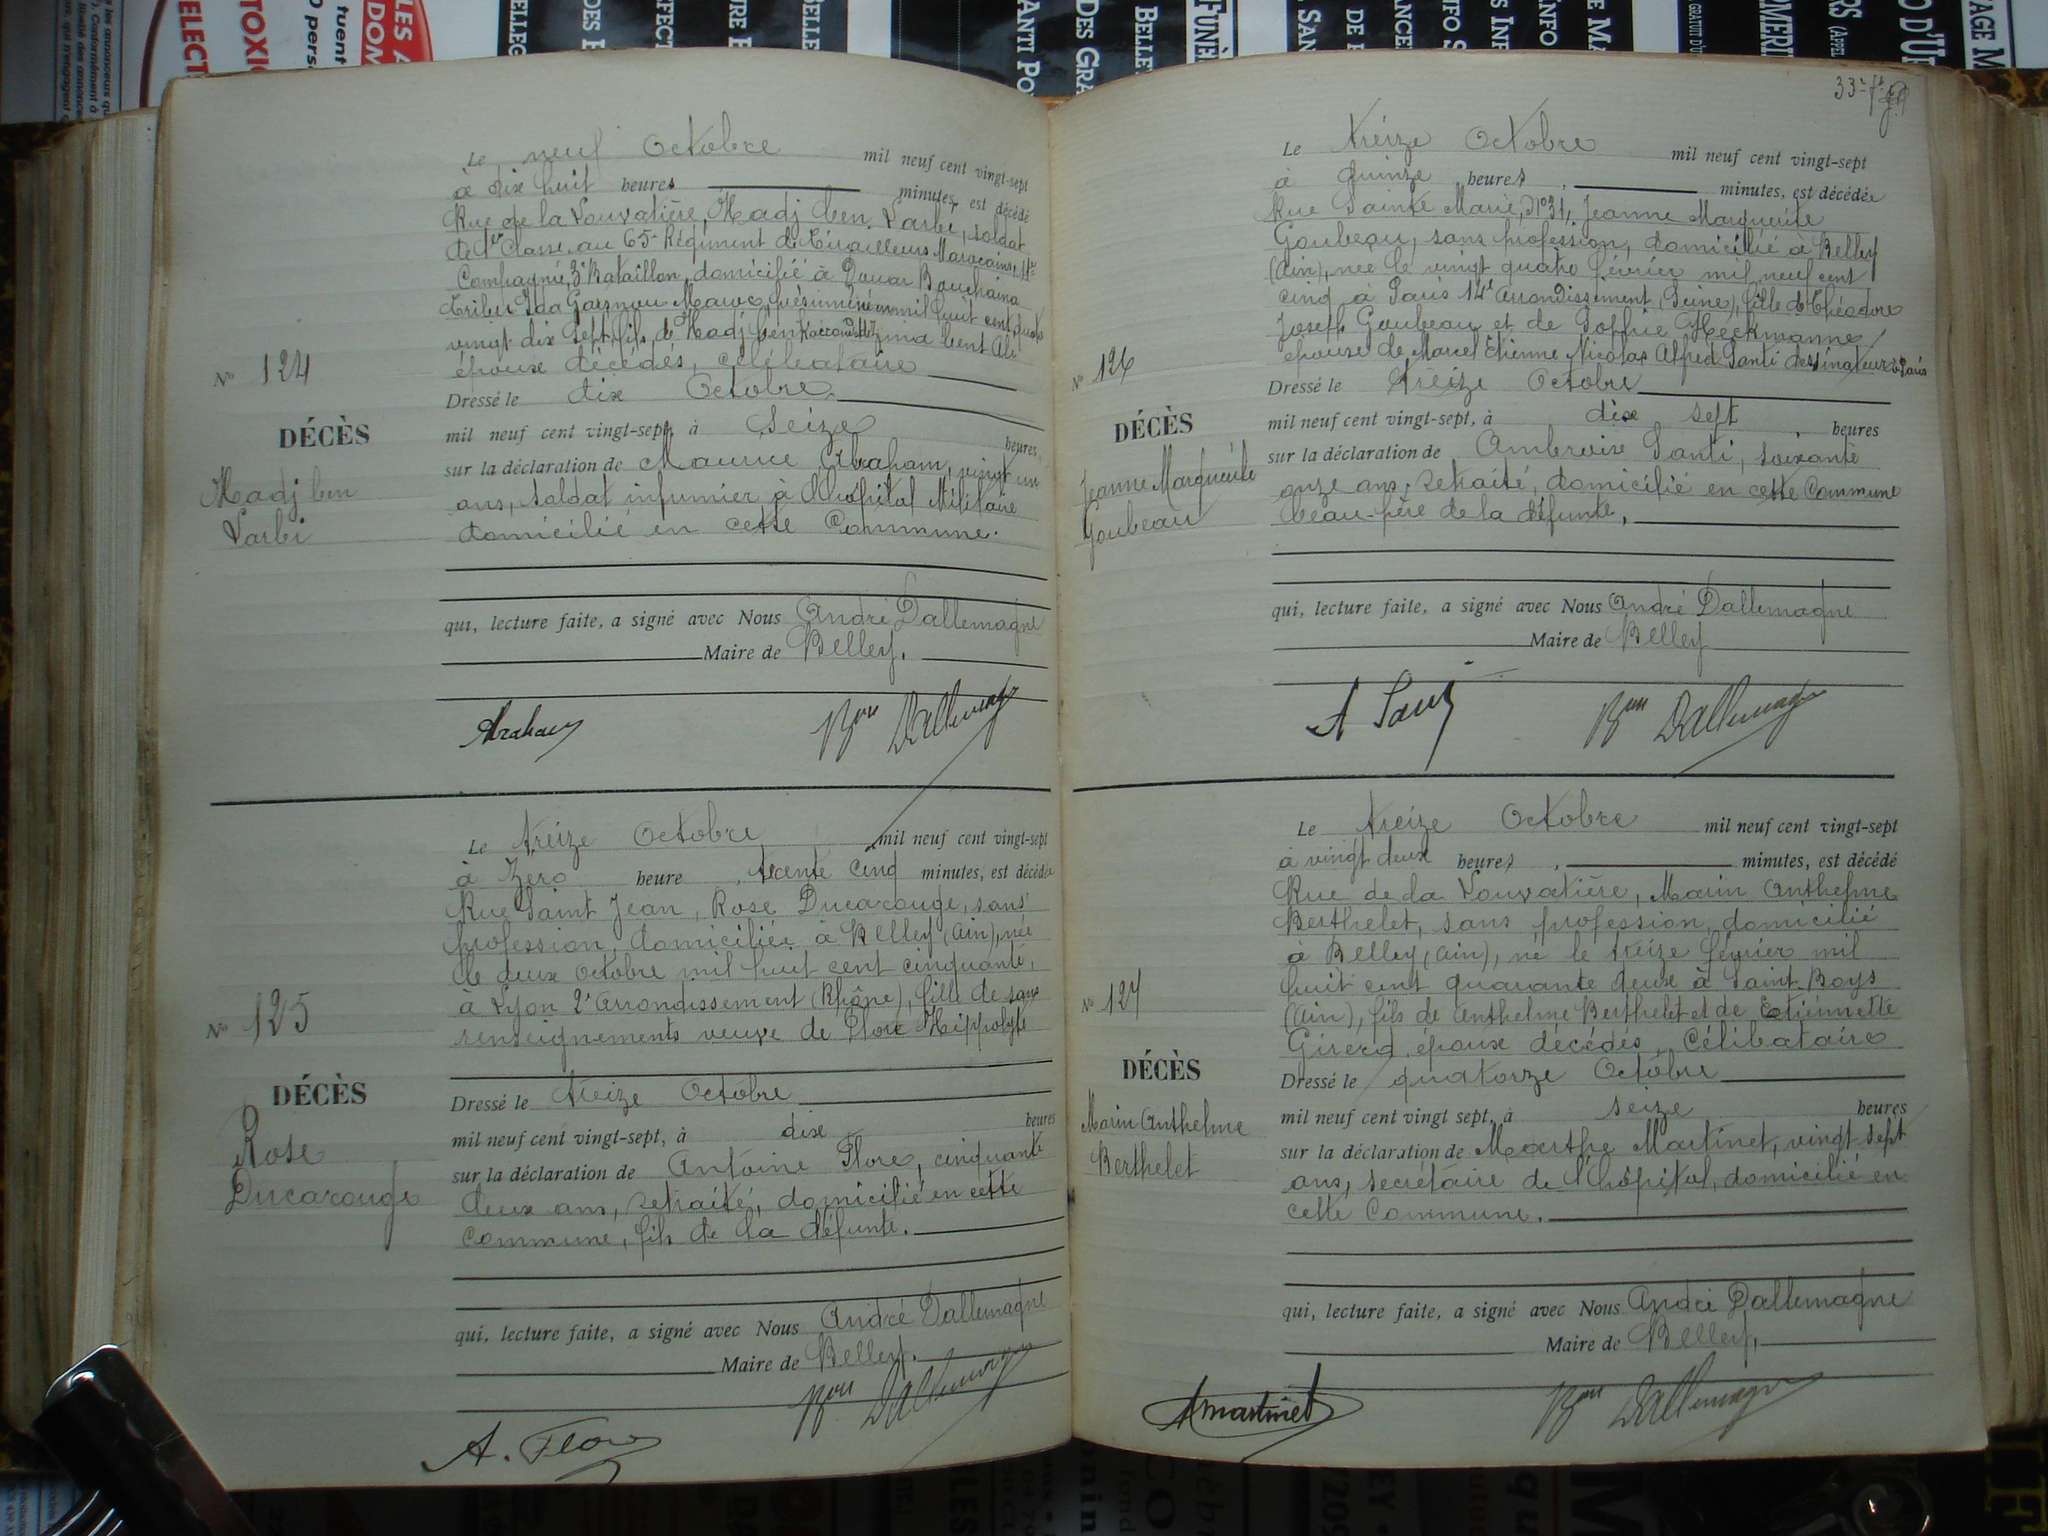 Le neuf Octobre mil neuf cent vingt-sept
à dix huit heures minutes, est décédé
Rue de la Louvatière, Hadj ben Larbi, soldat
de 1ère Classe au 65e Régiment de Tirailleurs Marocains, 11e
Compagnie, 3e Bataillon, domicilié à Douar Bouchaina
tribu Ida Gaznou Maroc, présumé né en mil huit cent quatre
vingt dix sept, fils de Hadj ben et de bent Ali
époux décédés, célibataire
Dressé le dix Octobre
mil neuf cent vingt-sept, à Seize heures
sur la déclaration de Maurice Abraham, vingt un
ans, soldat infirmier à l'hôpital Militaire
domicilié en cette Commune.
qui, lecture faite, a signé avec Nous André Dallemagne
Maire de Belley.
No 124
DÉCÈS
Hadj ben
Larbi
Abraham Bon Dallemagne
Le treize Octobre mil neuf cent vingt-sept
à Zero heure, trente cinq minutes, est décédée
Rue Saint Jean, Rose Ducarouge, sans
profession, domiciliée à Belley (Ain), née
le deux octobre mil huit cent cinquante,
à Lyon 2e arrondissement (Rhône), fille de sans
renseignements veuve de Flore Hippolyte
Dressé le treize Octobre
mil neuf cent vingt-sept, à dix heures
sur la déclaration de Antoine Flore, cinquante
deux ans, retraité, domicilié en cette
Commune, fils de la défunte.
qui, lecture faite, a signé avec Nous André Dallemagne
Maire de Belley.
No 125
DÉCÈS
Rose
Ducarouge
A. Flore Bon Dallemagne
33e ft
Le treize Octobre mil neuf cent vingt-sept
à quinze heures, minutes, est décédée
Rue Sainte Marie, No 31, Jeanne Marguerite
Goubeau, sans profession, domicilié à Belley
(Ain), née le vingt quatre février mil neuf cent
cinq à Paris 14e arrondissement (Seine), fille de Théodore
Joseph Goubeau et de Sophie Heckmanne
épouse de Marcel Etienne Nicolas Alfred Santi dessinateur à Paris
Dressé le treize Octobre
mil neuf cent vingt-sept, à dix sept heures
sur la déclaration de Ambroise Santi, soixante
onze ans, retraité, domicilié en cette Commune
beau-père de la défunte,
qui, lecture faite, a signé avec Nous André Dallemagne
Maire de Belley
No 126
DÉCÈS
Jeanne Marguerite
Goubeau
A Santi Bon Dallemagne
Le treize Octobre mil neuf cent vingt-sept
à vingt deux heures, minutes, est décédé
Rue de la Louvatière, Marin Anthelme
Berthelet, sans profession, domicilié
à Belley (Ain), né le treize février mil
huit cent quarante deux à Saint Boys
(Ain), fils de Anthelme Berthelet et de Etiennette
Girerd, époux décédés, Célibataire
Dressé le quatorze Octobre
mil neuf cent vingt sept, à seize heures
sur la déclaration de Marthe Martinet, vingt sept
ans, secrétaire de l'hôpital, domicilié en
cette Commune.
qui, lecture faite, a signé avec Nous André Dallemagne
Maire de Belley,
No 127
DÉCÈS
Marin Anthelme
Berthelet
Martinet Bon Dallemagne